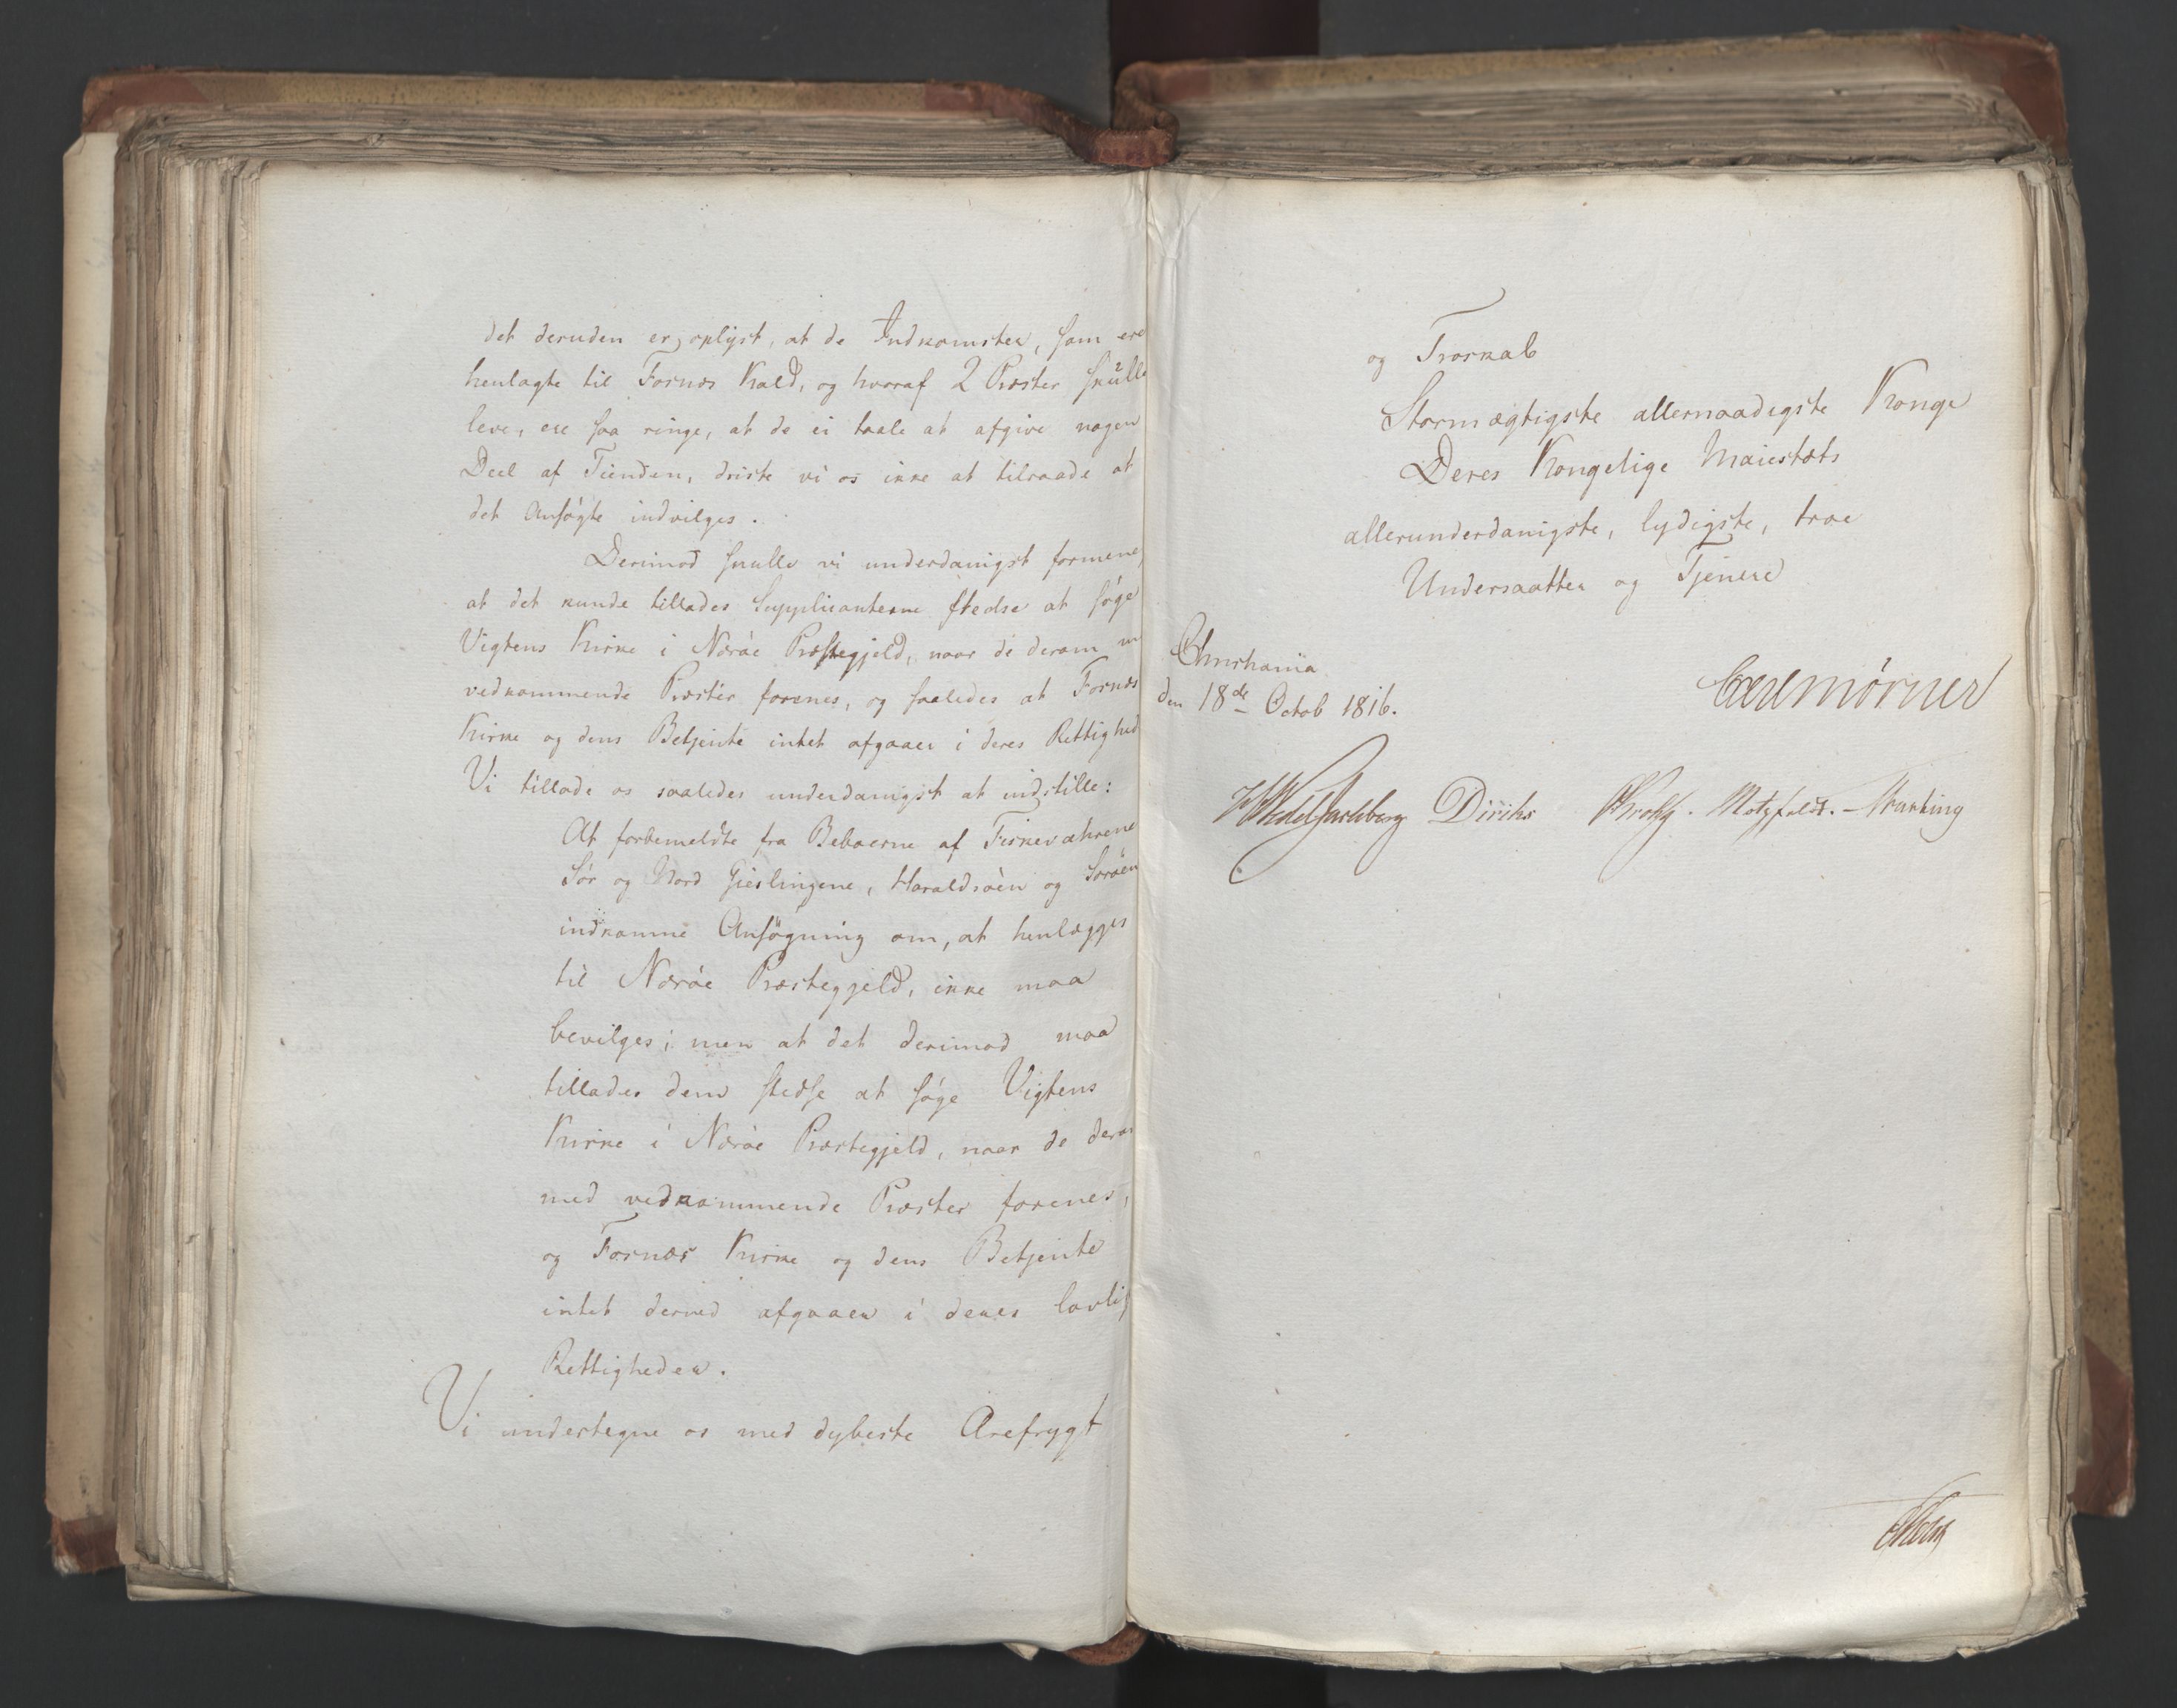 det deruden er oplyst, at de Indkomster, som ere
henlagte til Fornæs Kald, og hvoraf 2 Præster skulle
leve, ere saa ringe, at de ei taale at afgive nogen
Deel af Tienden, driste vi os ikke at tilraade at
det Ansøgte indvilges.
Derimod skulle vi underdanigst formene,
at det kunde tillades Supplicanterne stedse at søge
Vigtens Kirke i Nærøe Præstegjeld, naar de derom m
vedkommende Præster forenes, og saaledes at Fornæs
Kirke og dens Betjente intet afgaaer i deres Rettighed
Vi tillade os saaledes underdanigst at indstille:
At forbemeldte fra Beboerne af Fiskeværene
Sør og Nord Gieslingene, Haraldsøen og Sørøen
indkomne Ansøgning om, at henlægges
til Nærøe Præstegjeld, ikke maa
bevilges; men at det derimod maa
tillades dem stedse at søge Vigtens
Kirke i Nærøe Præstegjeld, naar de derom
med vedkommende Præster forenes,
og Fornæs Kirke og dens Betjente
intet derved afgaaer i deres lovlig
Rettigheder.
Vi undertegne os med dybeste Ærefrygt
og Troskab
Stormægtigste allernaadigste Konge
Deres Kongelige Maiestæts
allerunderdanigste, lydigste, troe
Undersaatter og Tjenere
Christiania
den 18de Octob 1816.
Carl Mörner
Wedel Jarlsberg Diriks Krohg. Motzfeldt.